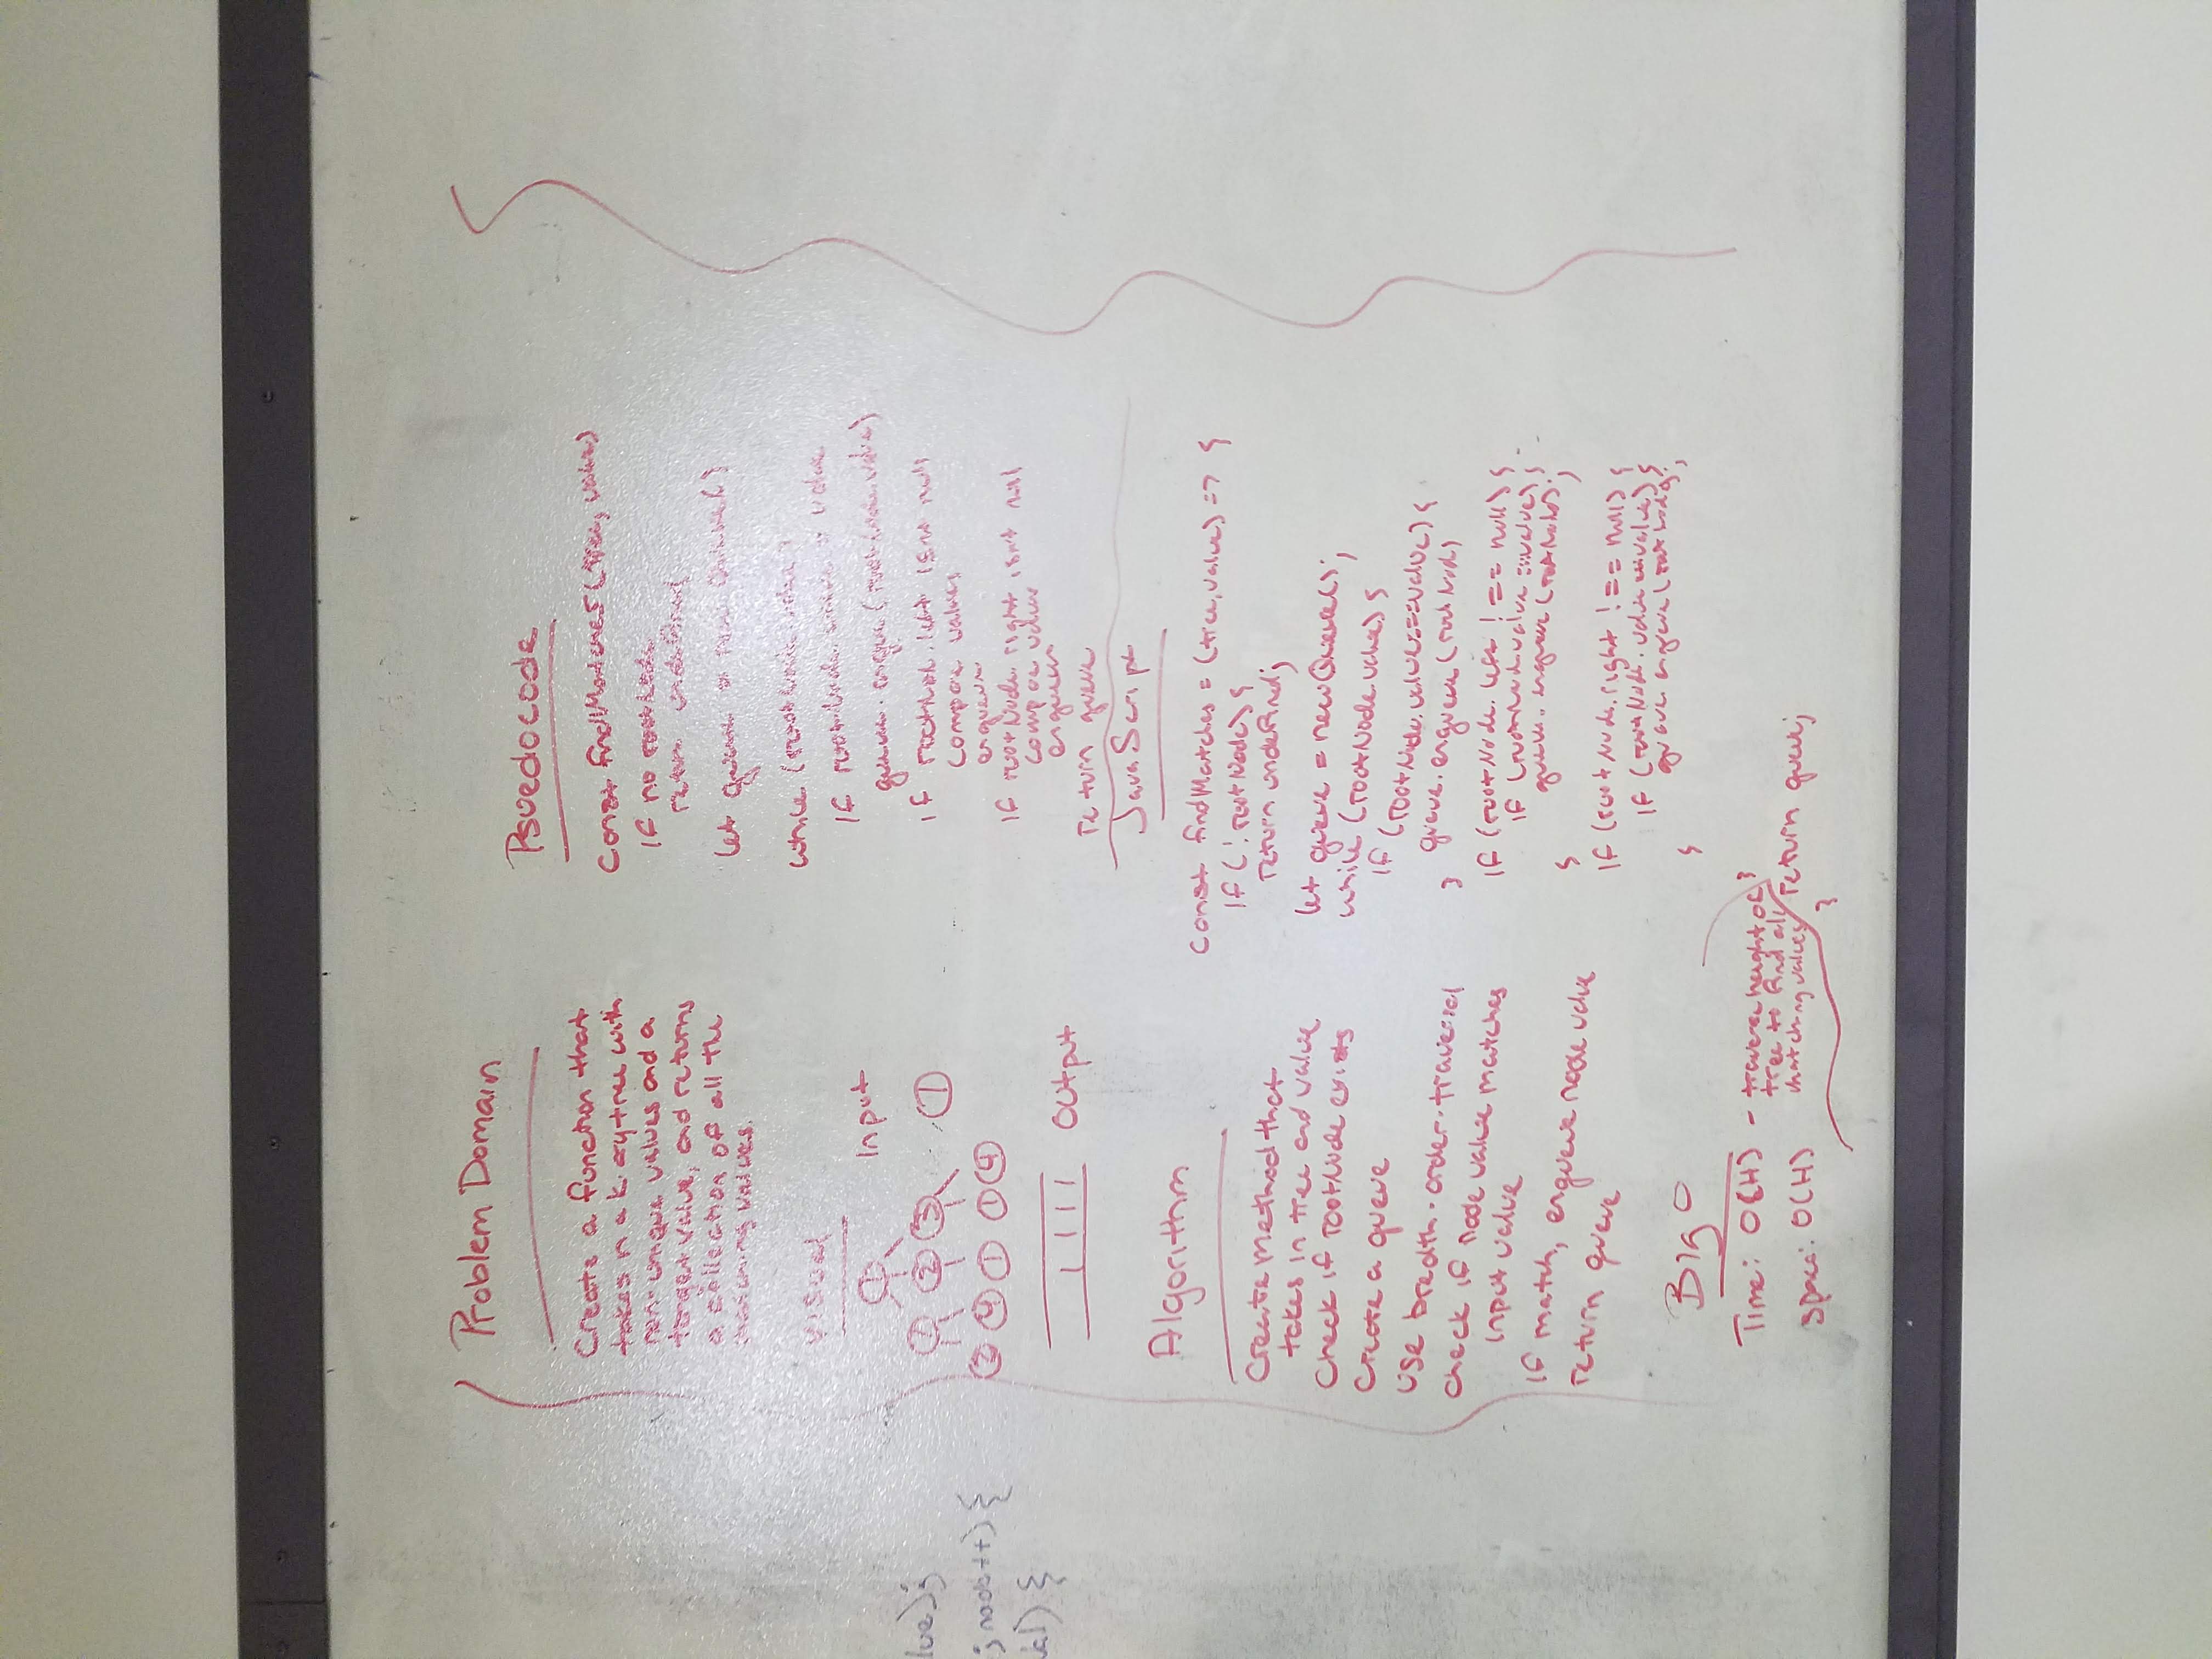 Problem Domain
Create a function that
takes n a k-ary tree with
non-unique values and a
target value, and returns
a collection of all the
matching values.
Visual
Input
1
1 2 3
1
2 4 1 1 4
1 1 1 1
Output
Algorithm
Create method that
takes in tree and value
Check if rootNode exists
Create a queue
use bredth-order-traversal
Check if node value matches
Input value
If match, enqueue node value
return queue
Big O
Time: O(H) - traverse height of
tree to find all
matching values
Space: O(H)
Psuedocode
Const findMatches (tree, value)
If no rootNode
return undefined
let queue = new Queue()
while (rootNode.value)
If rootNode.value = value
queue.enqueue (rootNode.value)
If rootNode.left isnt null
compare values
enqueue
If rootNode.right isn't null
compare values
enqueue
return queue
JavaScript
const findMatches = (tree, value) => {
If (!rootNode) {
return undefined;
let queue = new Queue();
while (rootNode.value) {
If (rootNode.value === value) {
queue.enqueue (rootNode)
}
If (rootNode.left !== null) {
If (rootNode.value === value) {
queue.enqueue (rootNode);
}
If (rootNode.right !== null) {
If (rootNode.value === value) {
queue.enqueue (rootNode);
}
}
return queue;
}
lue);
; node++) {
val) {